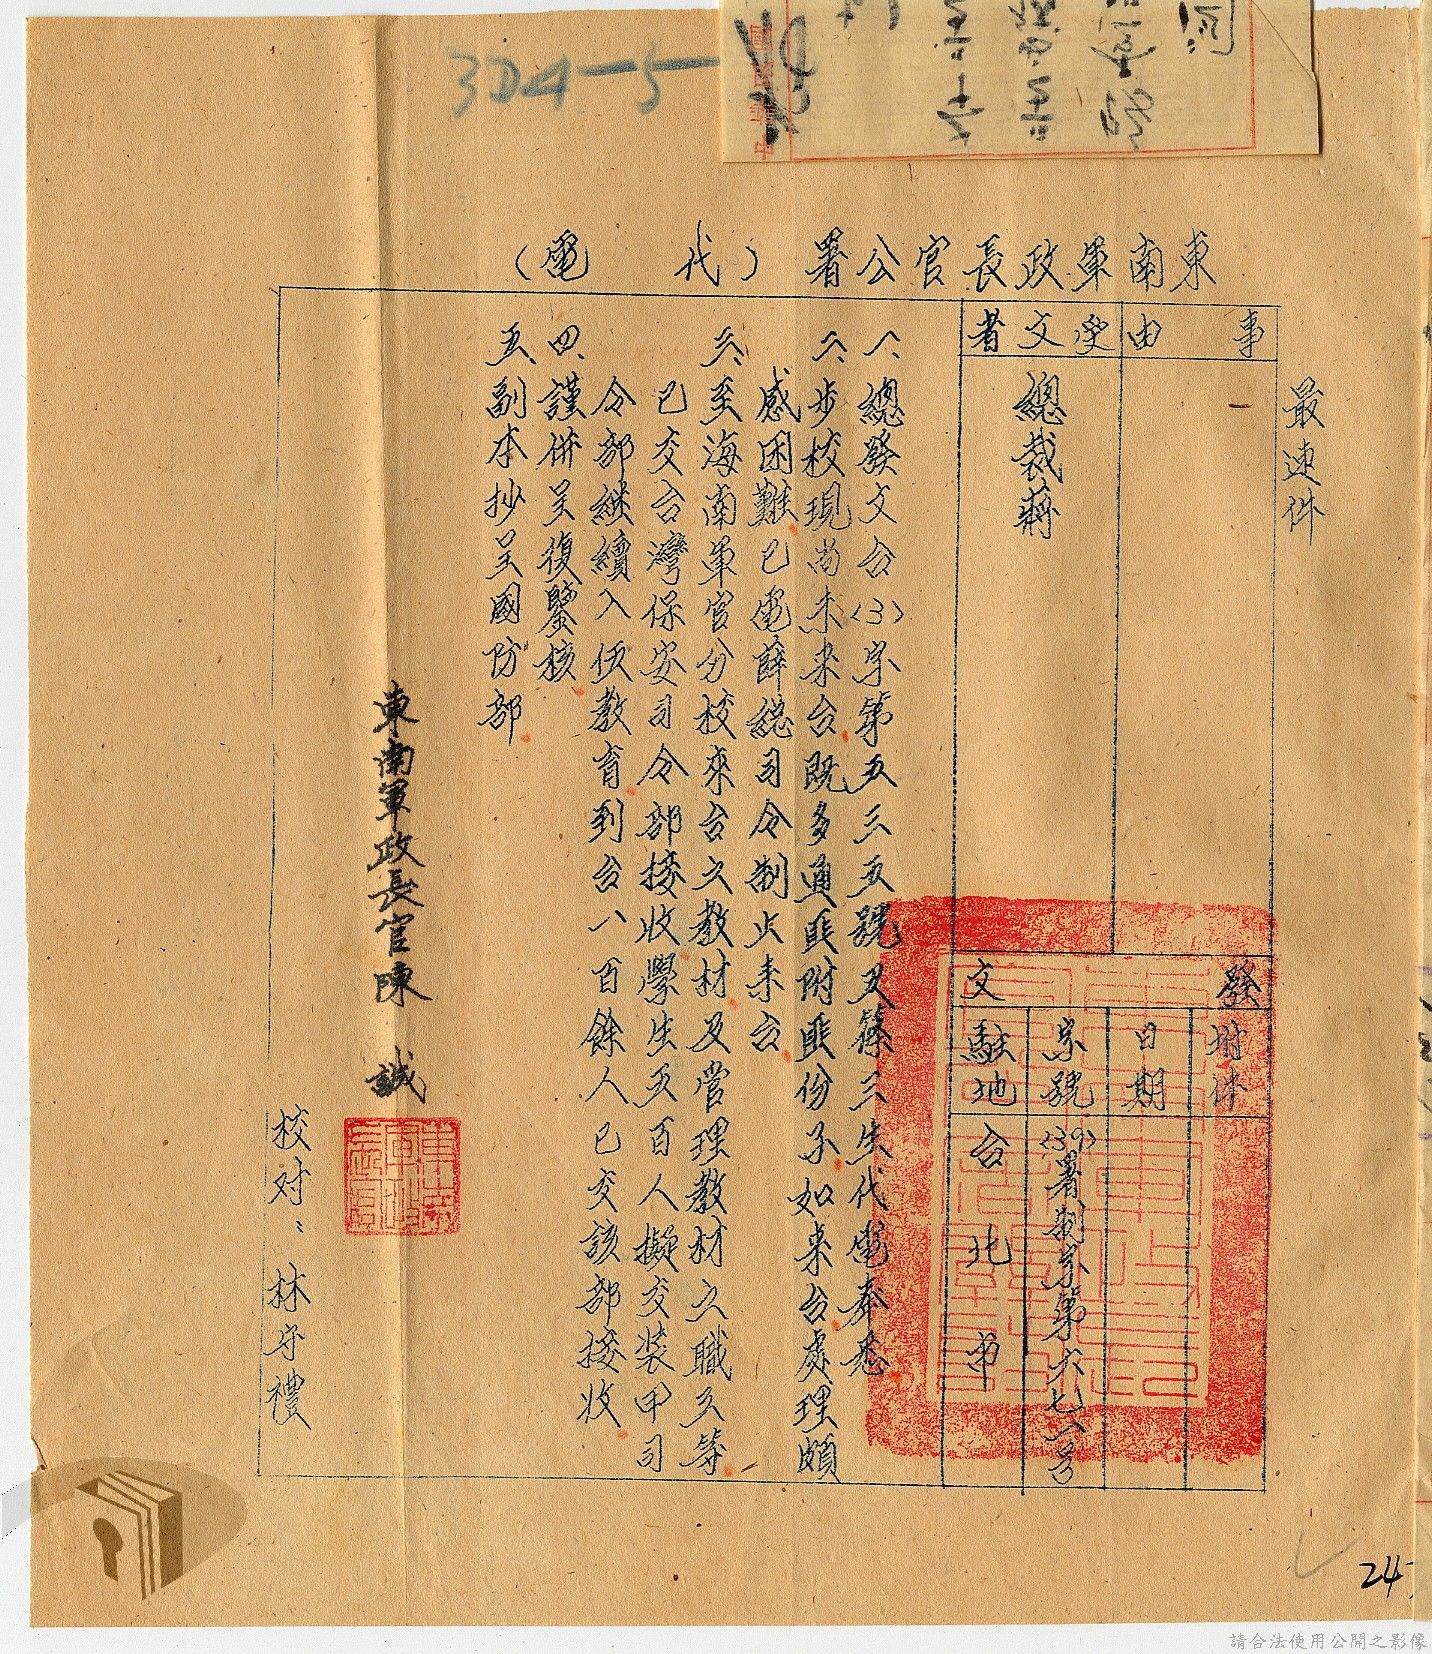 304-5
東南軍政長官公署（代電）
最速件
事由
受文者
總裁蔣
發文
附件
日期
字號
(39)署制字第六七八号
駐地
台北市
一、總發文台(3)字第五三五號又篠三生代電奉悉
二、步校現尚未来台既多通匪附匪份子如來台處理頗
感困難已電薛總司令制止来台
三、至海南軍官分校來台之教材及管理教材之職員等
已交台灣保安司令部接收學生五百人擬交裝甲司
令部継續入伍教育到台八百餘人已交該部接收
四、謹併呈復鑒核
五、副本抄呈國防部
東南軍政長官陳 誠
校对：林守禮
24
請合法使用公開之影像